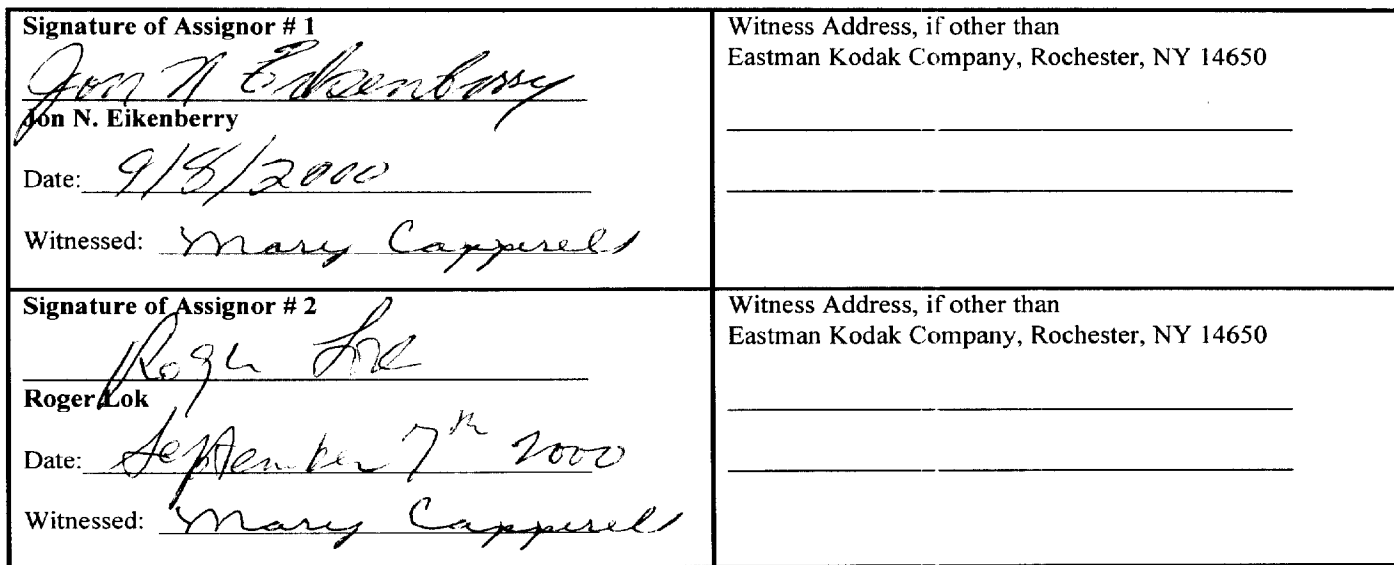 Signature of Assignor # 1
Jon N Eikenberry
Jon N. Eikenberry
Date: 9/8/2000
Witnessed: Mary Capperell
Witness Address, if other than
Eastman Kodak Company, Rochester, NY 14650
Signature of Assignor # 2
Roger Lok
Roger Lok
Date: September 7th 2000
Witnessed: Mary Capperell
Witness Address, if other than
Eastman Kodak Company, Rochester, NY 14650